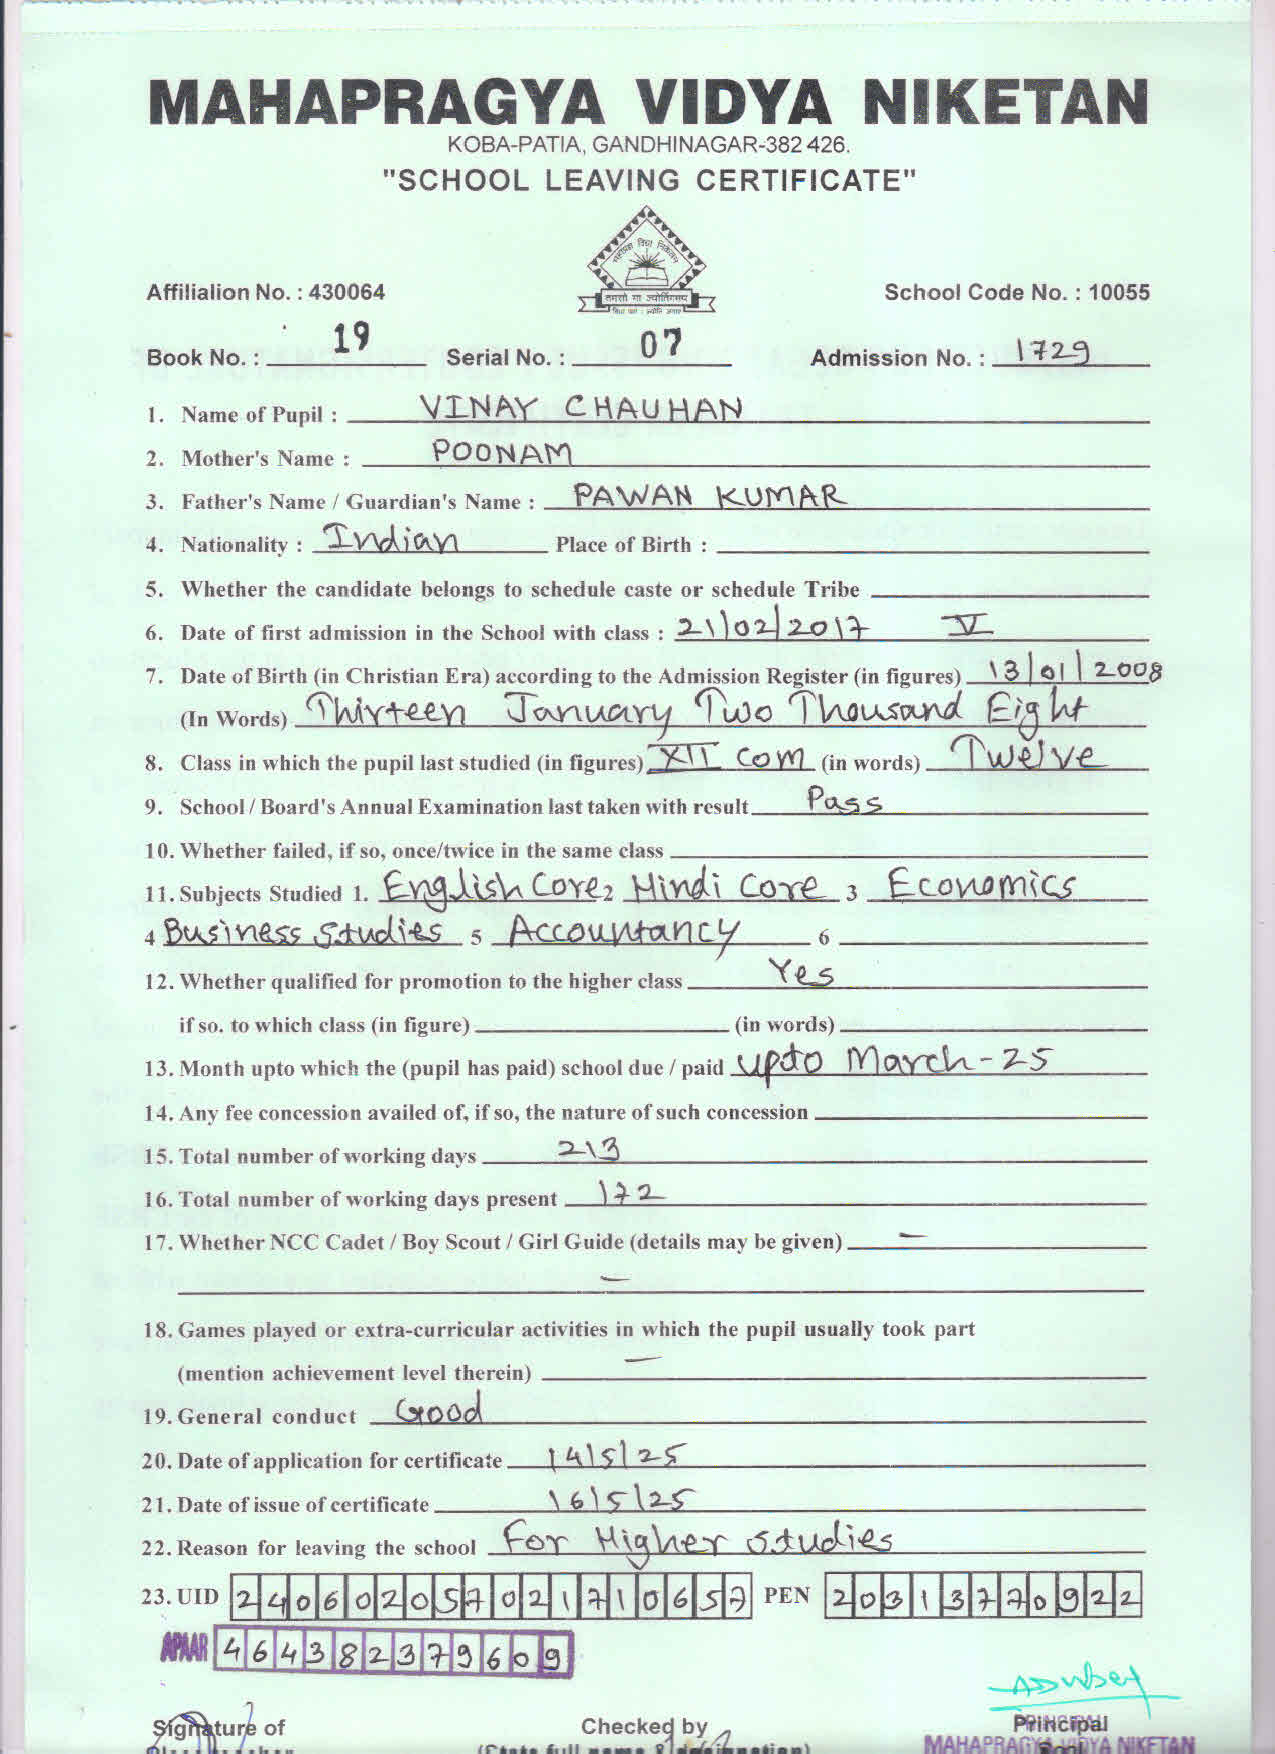 MAHAPRAGYA VIDYA NIKETAN
KOBA-PATIA, GANDHINAGAR-382 426.
"SCHOOL LEAVING CERTIFICATE"
महाप्रज्ञ विद्या निकेतन
तमसो मा ज्योतिर्गमय
Affilialion No. : 430064 School Code No. : 10055
Book No. : 19 Serial No. : 07 Admission No. : 1729
1. Name of Pupil : VINAY CHAUHAN
2. Mother's Name : POONAM
3. Father's Name / Guardian's Name : PAWAN KUMAR
4. Nationality : Indian Place of Birth :
5. Whether the candidate belongs to schedule caste or schedule Tribe
6. Date of first admission in the School with class : 21/02/2017 V
7. Date of Birth (in Christian Era) according to the Admission Register (in figures) 13/01/2008
(In Words) Thirteen January Two Thousand Eight
8. Class in which the pupil last studied (in figures) XII com (in words) Twelve
9. School / Board's Annual Examination last taken with result Pass
10. Whether failed, if so, once/twice in the same class
11. Subjects Studied 1. English Core 2 Hindi Core 3 Economics
4 Business Studies 5 Accountancy 6
12. Whether qualified for promotion to the higher class Yes
if so. to which class (in figure) (in words)
13. Month upto which the (pupil has paid) school due / paid upto March-25
14. Any fee concession availed of, if so, the nature of such concession
15. Total number of working days 213
16. Total number of working days present 172
17. Whether NCC Cadet / Boy Scout / Girl Guide (details may be given) —
—
18. Games played or extra-curricular activities in which the pupil usually took part
(mention achievement level therein) —
19. General conduct Good
20. Date of application for certificate 14/5/25
21. Date of issue of certificate 16/5/25
22. Reason for leaving the school For Higher Studies
23. UID 240602057021710657 PEN 20313770922
APAAR 464382379609
Signature of Checked by Principal
PRINCIPAL
(State full name & designation)
MAHAPRAGYA VIDYA NIKETAN